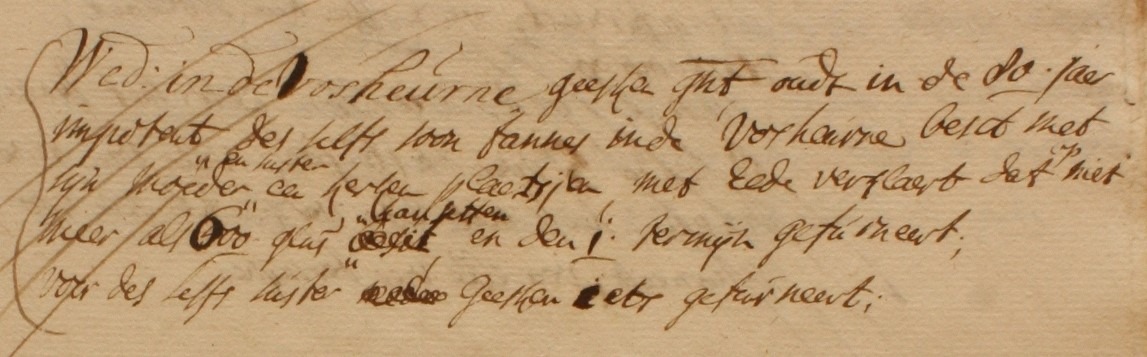 Wed: in de Vosheurne geesken gnt oudt in de 80. jaer
impotent des selfs soon Jannes in de Vosheurne besit met
sijn moeder en suster een kerken plaetsjen met Eede verklaert dat op niet
meer als 600 glns kan setten en den 1. termijn gefurneert;
voor des selfs suster geesken iets gefurneert;